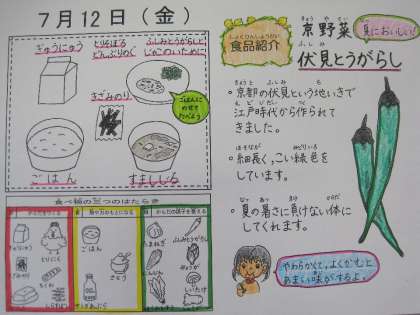 7月12日（金）
ぎゅうにゅう
とりそぼろ
どんぶりのぐ
ふしみとうがらしと
じゃこのいために
きざみのり
ごはんに
のせて
たべよう
ごはん
すましじる
食べ物の三つのはたらき
しょくひんしょうかい
食品紹介
きょう や さい
京野菜
夏においしい!
ふし み
伏見とうがらし
きょうと ふしみ ち
・京都の伏見という地いきで
えど じだい つく
江戸時代から作られて
きました。
ほそなが みどりいろ
・細長く、こい緑色を
しています。
なつ あつ ま からだ
・夏の暑さに負けない体に
してくれます。
やわらかくて、よくかむと
あまい味がするよ。
ぎゅうにゅう
とりにく
ごはん
さとう
たまねぎ
ふしみとうがらし
にんじん
しいたけ